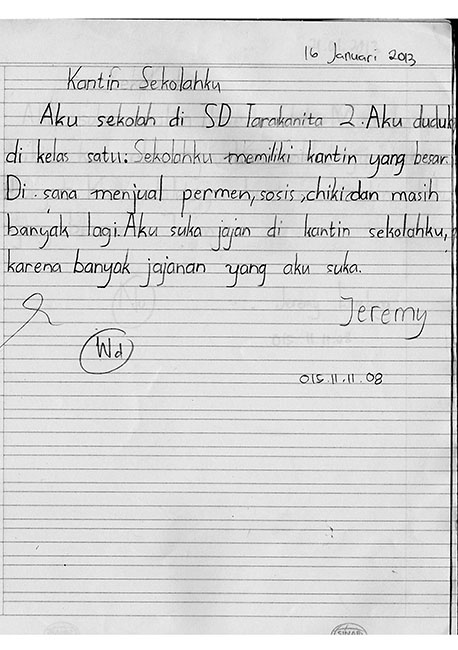 16 Januari 2013
Kantin Sekolahku
Aku sekolah di SD Tarakanita 2. Aku duduk
di kelas satu. Sekolahku memiliki kantin yang besar.
Di sana menjual permen, sosis, chiki dan masih
banyak lagi. Aku suka jajan di kantin sekolahku,
karena banyak jajanan yang aku suka.
Jeremy
Wd
015.11.11.08